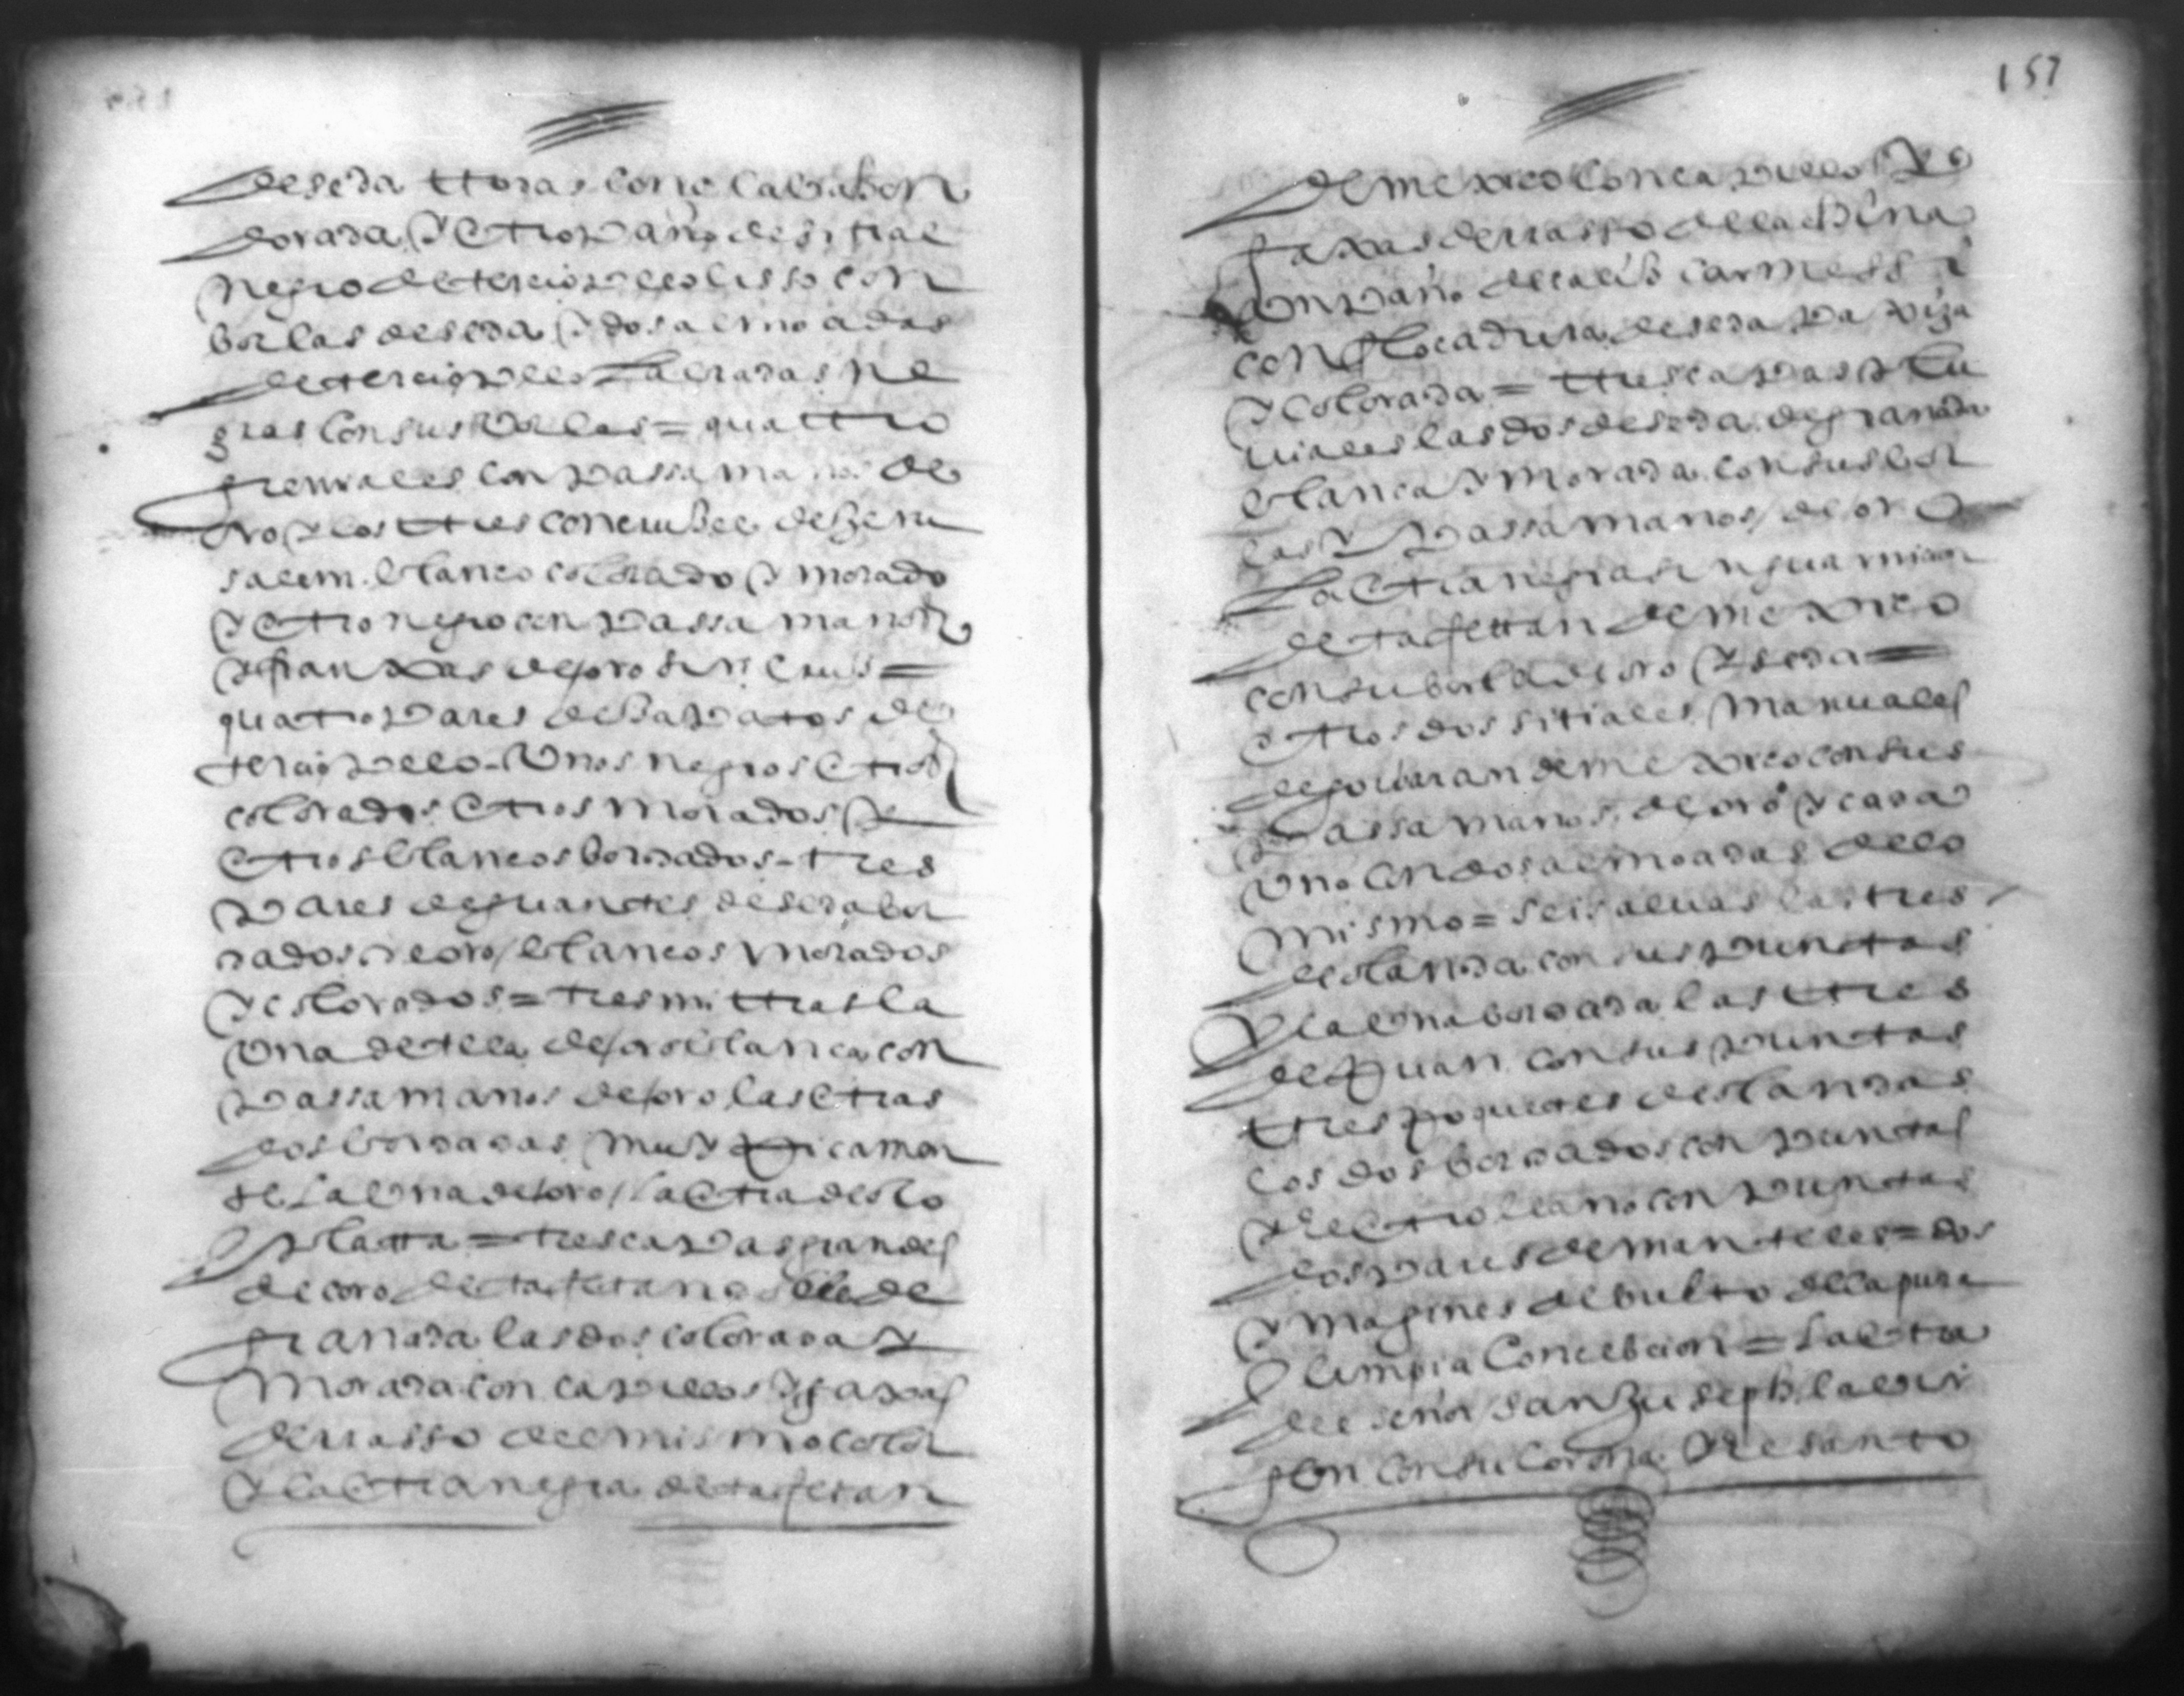 de seda ttoras con clabason
dorada y otro paño de sitial
negro de terciopelo lisso con
borlas de seda y dos almoadas
de terciopelo labradas ne
gras con sus borlas = quattro
gremiales con passamanos de
oro y los ttres con cruz de Jeru
salem blanco colorado y morado
y otro negro con passamanos
y franxas de oro sin cruz =
quatro pares de zapatos de
terciopelo - Unos negros otros
colorados otros morados y
otros blancos bordados - tres
pares de guantes de seda bor
dados de oro blancos morados
y colorados = tres mittras la
Una de tela de oro blanca con
passamanos de oro las otras
dos bordadas muy Ricamen
te la Una de oro la otra de
platta = tres capas grandes
de coro de tafetan doble de
granada las dos colorada y
morada con capillos y faxas
de rrasso del mismo color
y la otra negra de tafetan
157
de mexico con capillos y
faxas de rrasso de la china
un paño de caliz carmessi
con flocadura de seda paxiza
y colorada = ttres capas plu
uiales las dos de seda de granada
blanca y morada con sus bor
las y passamanos de oro
La otra negra sin guarnicion
de tafettan de mexico
con su borla de oro y seda =
otros dos sitiales manuales
de gorbaran de mexico con sus
passamanos de oro y cada
Uno con dos almoadas de lo
mismo = seis aluas las tres
de olanda con sus puntas
y la Una bordada las ttres
de Ruan con sus puntas
ttres Roquetes de olandas
los dos bordados con puntas
y el otro llano con puntas
dos pares de manteles = dos
ymagines de bulto de la pura
y limpia Concebcion = La otra
del señor san Juseph la vir
gen con su corona y el santo